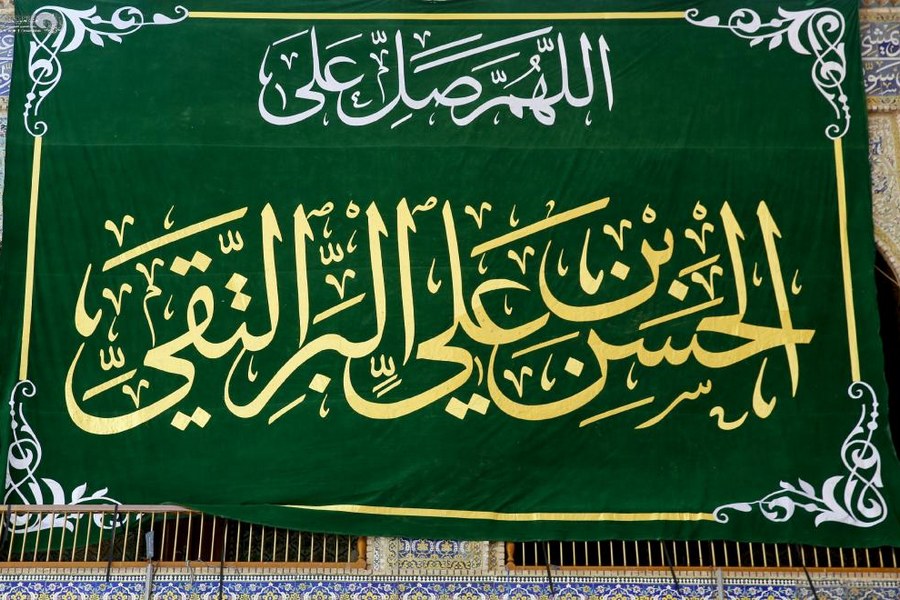 اللَّهُمَّ صَلِّ عَلَى
الحَسَنِ بْنِ عَلِيٍّ البَرِّ التَّقِيِّ